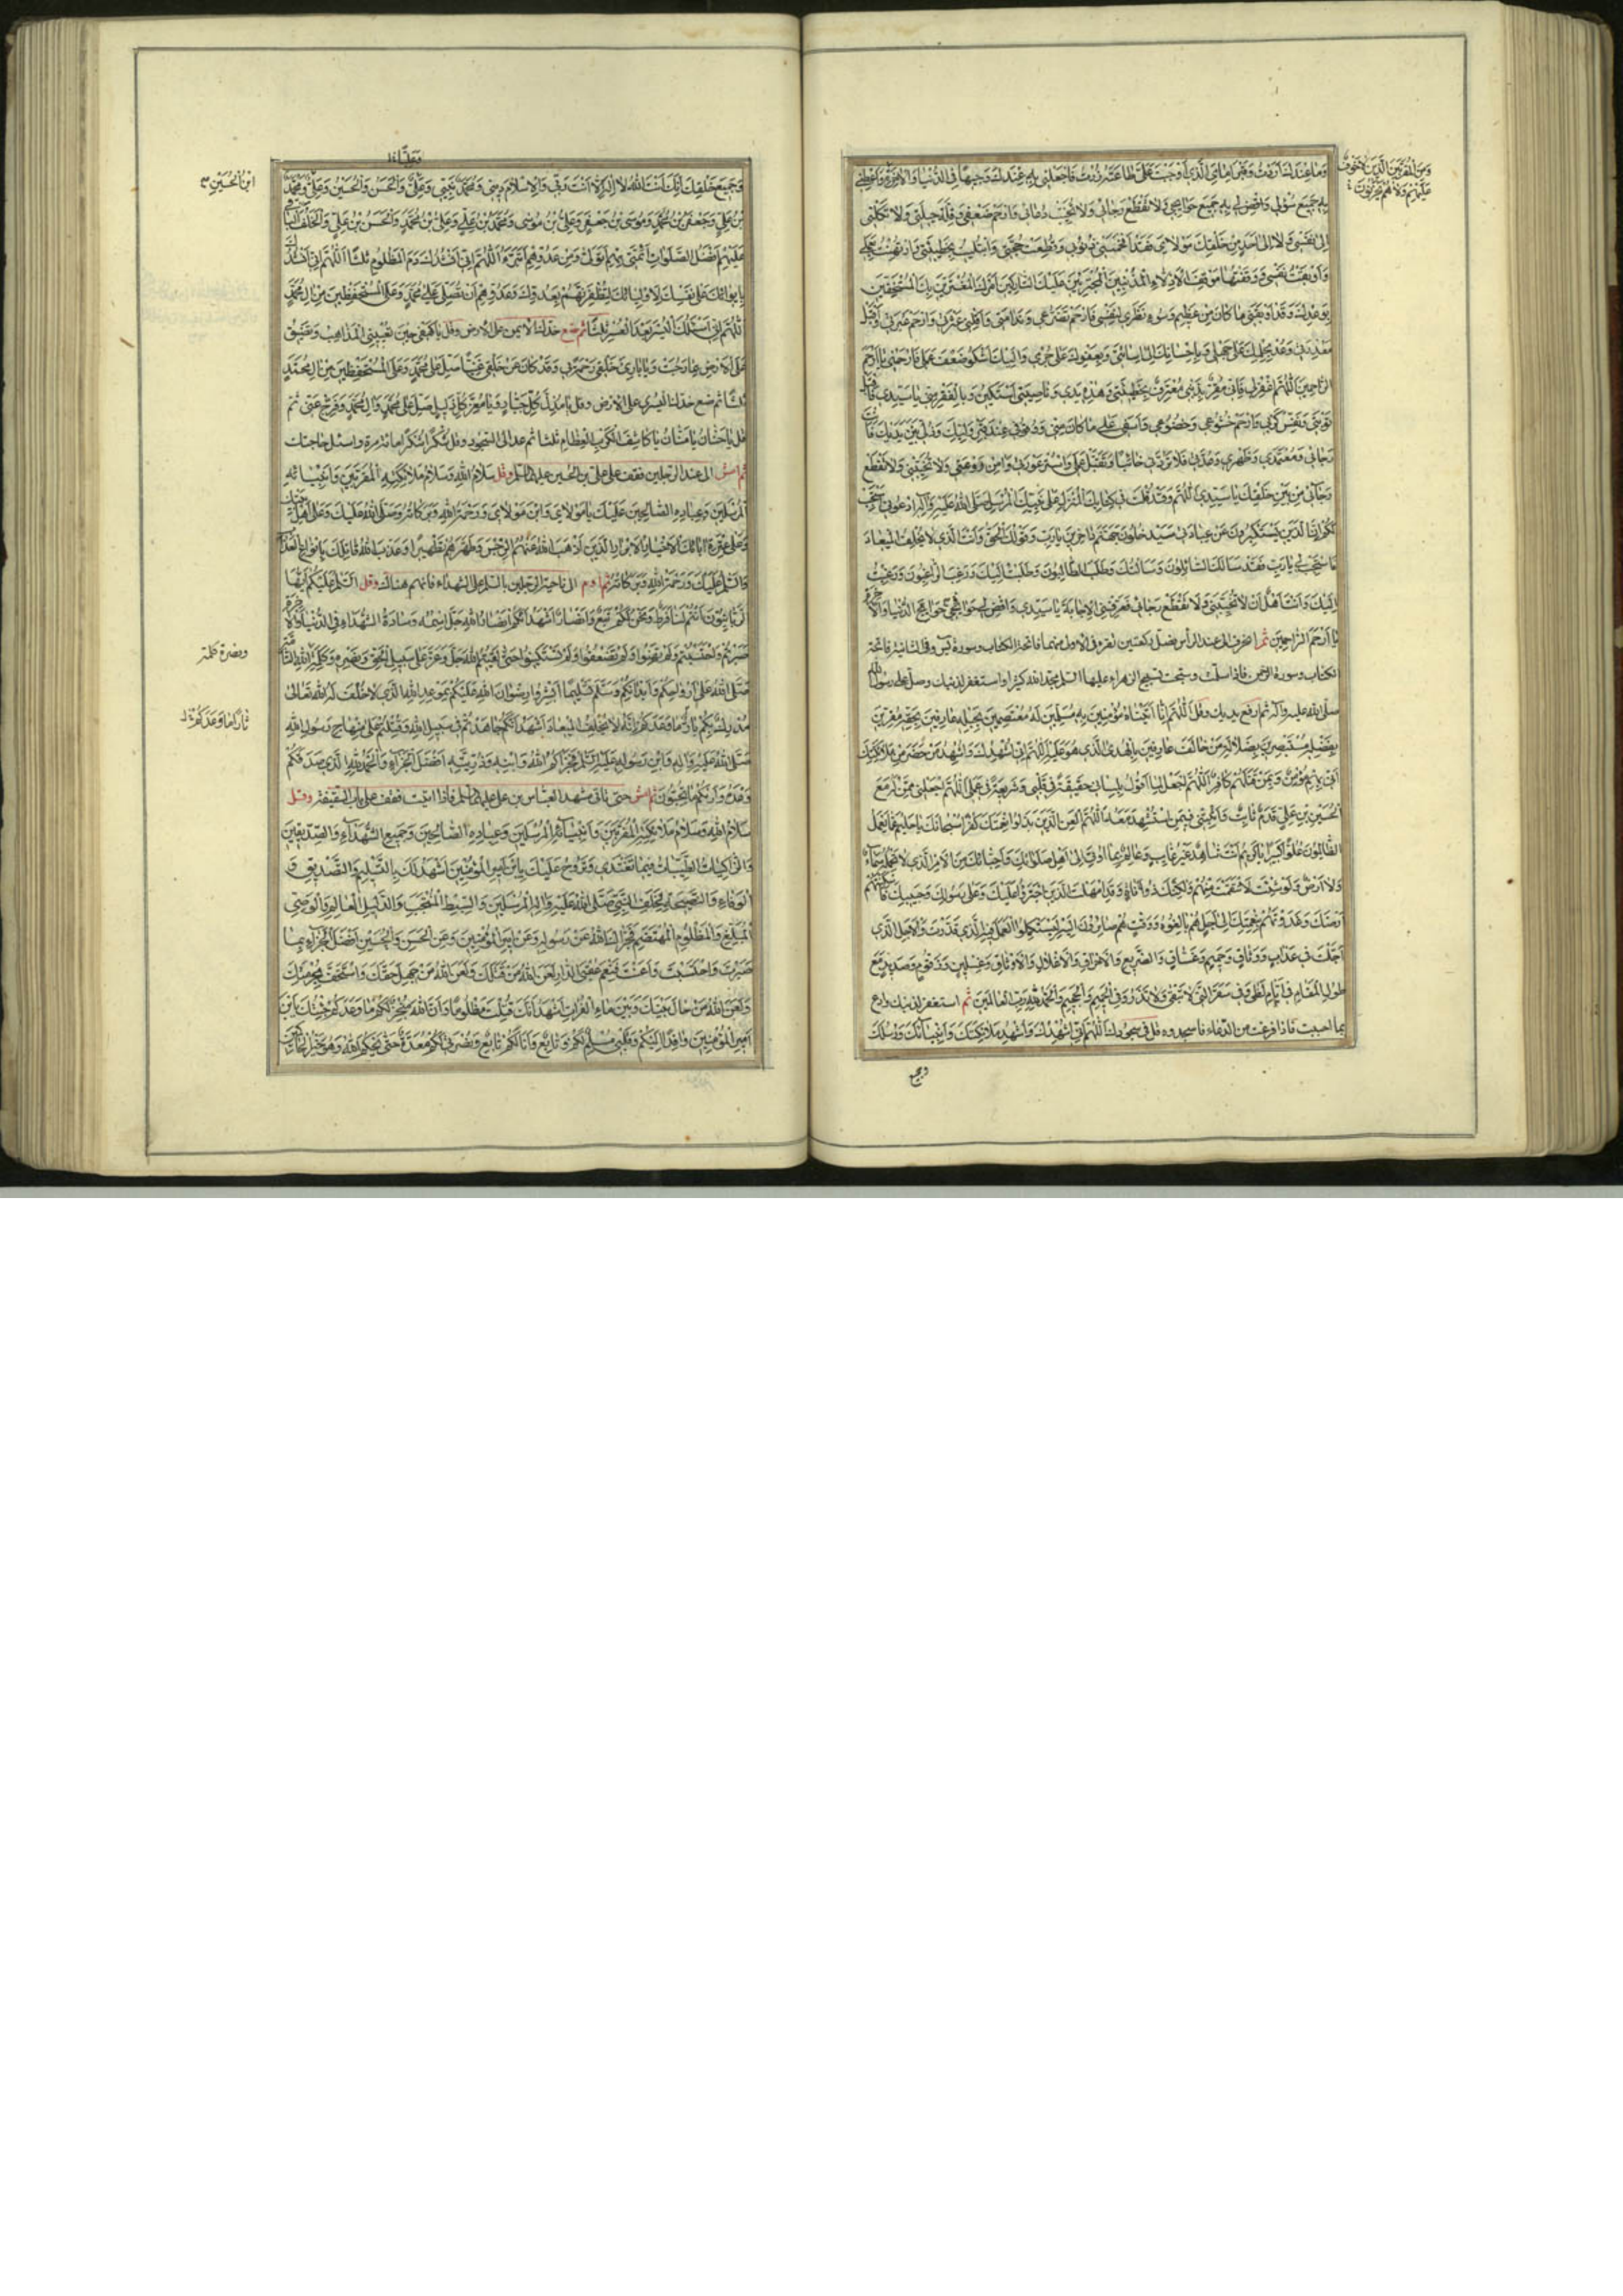 وَمَا عِنْدَكَ اَرَدْتُ وَقَبْرَ اِمَامِيَ الَّذِي اَوْجَبْتَ عَلَيَّ طَاعَتَهُ زُرْتُ فَاجْعَلْنِي بِهِ عِنْدَكَ وَجِيهًا فِي الدُّنْيَا وَالْاٰخِرَةِ وَاَعْطِنِي
وَمِنَ الْمُقَرَّبِينَ الَّذِينَ لَا خَوْفٌ
عَلَيْهِمْ وَلَا هُمْ يَحْزَنُونَ
بِهِ جَمِيعَ سُؤْلِي وَاقْضِ لِي بِهِ جَمِيعَ حَوَائِجِي وَلَا تَقْطَعْ رَجَائِي وَلَا تُخَيِّبْ دُعَائِي وَارْحَمْ ضَعْفِي وَقِلَّةَ حِيلَتِي وَلَا تَكِلْنِي
اِلَى نَفْسِي وَلَا اِلَى اَحَدٍ مِنْ خَلْقِكَ مَوْلَايَ فَقَدْ اَفْحَمَتْنِي ذُنُوبِي وَقُطِعَتْ حُجَّتِي وَابْتُلِيتُ بِخَطِيئَتِي وَارْتُهِنْتُ بِعَمَلِي
وَاَوْبَقْتُ نَفْسِي وَوَقَفْتُهَا مَوْقِفَ الْاَذِلَّاءِ الْمُذْنِبِينَ الْمُجْتَرِئِينَ عَلَيْكَ التَّارِكِينَ اَمْرَكَ الْمُغْتَرِّينَ بِكَ الْمُسْتَخِفِّينَ
بِوَعْدِكَ وَقَدْ اَوْبَقَنِي مَا كَانَ مِنْ عَظِيمِ وَسُوءِ نَظَرِي لِنَفْسِي فَارْحَمْ تَضَرُّعِي وَنَدَامَتِي وَاَقِلْنِي عَثْرَتِي وَارْحَمْ عَبْرَتِي وَاقْبَلْ
مَعْذِرَتِي وَعُدْ بِحِلْمِكَ عَلَى جَهْلِي وَبِاِحْسَانِكَ اِلَى اِسَائَتِي وَبِعَفْوِكَ عَلَى جُرْمِي وَاِلَيْكَ اَشْكُو ضَعْفَ عَمَلِي فَارْحَمْنِي يَا اَرْحَمَ
الرَّاحِمِينَ اللّٰهُمَّ اغْفِرْ لِي فَاِنِّي مُقِرٌّ بِذَنْبِي مُعْتَرِفٌ بِخَطِيئَتِي وَهٰذِهِ يَدِي وَنَاصِيَتِي اَسْتَكِينُ بِالْفَقْرِ مِنِّي يَا سَيِّدِي فَاقْبَلْ
تَوْبَتِي وَنَفِّسْ كَرْبِي وَارْحَمْ خُشُوعِي وَخُضُوعِي وَاَسَفِي عَلَى مَا كَانَ مِنِّي وَوُقُوفِي عِنْدَ قَبْرِ وَلِيِّكَ وَذُلِّي بَيْنَ يَدَيْكَ فَاَنْتَ
رَجَائِي وَمُعْتَمَدِي وَظَهْرِي وَعُدَّتِي فَلَا تَرُدَّنِي خَائِبًا وَتَقَبَّلْ عَمَلِي وَاسْتُرْ عَوْرَتِي وَاٰمِنْ رَوْعَتِي وَلَا تُخَيِّبْنِي وَلَا تَقْطَعْ
رَجَائِي مِنْ بَيْنِ خَلْقِكَ يَا سَيِّدِي اللّٰهُمَّ وَقَدْ قُلْتَ فِي كِتَابِكَ الْمُنْزَلِ عَلَى نَبِيِّكَ الْمُرْسَلِ صَلَّى اللّٰهُ عَلَيْهِ وَاٰلِهِ ادْعُونِي اَسْتَجِبْ
لَكُمْ اِنَّ الَّذِينَ يَسْتَكْبِرُونَ عَنْ عِبَادَتِي سَيَدْخُلُونَ جَهَنَّمَ دَاخِرِينَ يَا رَبِّ وَقَوْلُكَ الْحَقُّ وَاَنْتَ الَّذِي لَا تُخْلِفُ الْمِيعَادَ
فَاسْتَجِبْ لِي يَا رَبِّ فَقَدْ سَاَلَكَ السَّائِلُونَ وَسَاَلْتُكَ وَطَلَبَ الطَّالِبُونَ وَطَلَبْتُ اِلَيْكَ وَرَغِبَ الرَّاغِبُونَ وَرَغِبْتُ
اِلَيْكَ وَاَنْتَ اَهْلٌ اَنْ لَا تُخَيِّبَنِي وَلَا تَقْطَعَ رَجَائِي فَعَرِّفْنِي الْاِجَابَةَ يَا سَيِّدِي وَاقْضِ لِي حَوَائِجِي حَوَائِجَ الدُّنْيَا وَالْاٰخِرَةِ
يَا اَرْحَمَ الرَّاحِمِينَ ثم انصرف الى عند الراس فصل ركعتين تقرء فى الاولى منهما فاتحة الكتاب وسورة يس وفى الثانية فاتحة
الكتاب وسورة الرحمن فاذا سلمت وسبحت تسبيح الزهراء عليها السلم مجد الله كثيرا واستغفر لذنبك وصل على رسول الله
صلى الله عليه وآله ثم ارفع يديك وقل اَللّٰهُمَّ اِنَّا اَتَيْنَاهُ مُؤْمِنِينَ بِهِ مُسَلِّمِينَ لَهُ مُعْتَصِمِينَ بِحَبْلِهِ عَارِفِينَ بِحَقِّهِ مُقِرِّينَ
بِفَضْلِهِ مُسْتَبْصِرِينَ بِضَلَالَةِ مَنْ خَالَفَهُ عَارِفِينَ بِالْهُدَى الَّذِي هُوَ عَلَيْهِ اللّٰهُمَّ اِنِّي اُشْهِدُكَ وَاُشْهِدُ مَنْ حَضَرَ مِنْ مَلَائِكَتِكَ
اَنِّي بِهِمْ مُؤْمِنٌ وَبِمَنْ قَتَلَهُمْ كَافِرٌ اللّٰهُمَّ اجْعَلْ لِمَا اَقُولُ بِلِسَانِي حَقِيقَةً فِي قَلْبِي وَشَرِيعَةً فِي عَمَلِي اللّٰهُمَّ اجْعَلْنِي مِمَّنْ لَهُ مَعَ
الْحُسَيْنِ بْنِ عَلِيٍّ قَدَمٌ ثَابِتٌ وَاَثْبِتْنِي فِيمَنِ اسْتُشْهِدَ مَعَهُ اللّٰهُمَّ الْعَنِ الَّذِينَ بَدَّلُوا نِعْمَتَكَ كُفْرًا سُبْحَانَكَ يَا حَلِيمُ عَمَّا يَعْمَلُ
الظَّالِمُونَ عُلُوًّا كَبِيرًا
وَلَا اَرْضٌ وَلَوْ شِئْتَ لَانْتَقَمْتَ مِنْهُمْ وَلٰكِنَّكَ ذُو اَنَاةٍ وَقَدْ اَمْهَلْتَ الَّذِينَ اجْتَرَؤُا عَلَيْكَ وَعَلَى رَسُولِكَ وَحَبِيبِكَ فَاَسْكَنْتَهُمْ
اَرْضَكَ وَغَذَوْتَهُمْ بِنِعْمَتِكَ اِلَى اَجَلٍ هُمْ بَالِغُوهُ وَوَقْتٍ هُمْ صَائِرُونَ اِلَيْهِ لِيَسْتَكْمِلُوا الْعَمَلَ فِيهِ الَّذِي قَدَّرْتَ وَالْاَجَلَ الَّذِي
اَجَّلْتَ فِي عَذَابٍ وَوَثَاقٍ وَحَمِيمٍ وَغَسَّاقٍ وَالضَّرِيعِ وَالْاِحْرَاقِ وَالْاَغْلَالِ وَالْاَوْثَاقِ وَغِسْلِينٍ وَزَقُّومٍ وَصَدِيدٍ مَعَ
طُولِ الْمُقَامِ فِي اَيَّامِ لَظٰى وَفِي سَقَرَ الَّتِي لَا تُبْقِي وَلَا تَذَرُ وَفِي الْحَمِيمِ وَالْجَحِيمِ وَالْحَمْدُ لِلّٰهِ رَبِّ الْعَالَمِينَ ثم استغفر لذنبك وادع
بما احببت فاذا فرغت من الدعاء فاسجد وقل فى سجودك اَللّٰهُمَّ اِنِّي اُشْهِدُكَ وَاُشْهِدُ مَلَائِكَتَكَ وَاَنْبِيَائَكَ وَرُسُلَكَ
وجميع
وَجَمِيعَ خَلْقِكَ اَنَّكَ اَنْتَ اللّٰهُ لَا اِلٰهَ اِلَّا اَنْتَ رَبِّي وَالْاِسْلَامُ دِينِي وَمُحَمَّدٌ نَبِيِّي وَعَلِيٌّ وَالْحَسَنُ وَالْحُسَيْنُ وَعَلِيٌّ وَمُحَمَّدُ
ابْنُ الْحُسَيْنِ
بْنُ عَلِيٍّ وَجَعْفَرُ بْنُ مُحَمَّدٍ وَمُوسَى بْنُ جَعْفَرٍ وَعَلِيُّ بْنُ مُوسَى وَمُحَمَّدُ بْنُ عَلِيٍّ وَعَلِيُّ بْنُ مُحَمَّدٍ وَالْحَسَنُ بْنُ عَلِيٍّ وَالْخَلَفُ الْبَاقِي
عَلَيْهِمْ اَفْضَلُ الصَّلَوَاتِ اَئِمَّتِي بِهِمْ اَتَوَلَّى وَمِنْ عَدُوِّهِمْ اَتَبَرَّءُ اللّٰهُمَّ اِنِّي اَنْشُدُكَ دَمَ الْمَظْلُومِ ثلثا اَللّٰهُمَّ اِنِّي اَنْشُدُكَ
بِاِيوَائِكَ عَلَى نَفْسِكَ لِاَوْلِيَائِكَ لَتُظْفِرَنَّهُمْ بِعَدُوِّكَ وَعَدُوِّهِمْ اَنْ تُصَلِّيَ عَلَى مُحَمَّدٍ وَعَلَى الْمُسْتَحْفَظِينَ مِنْ اٰلِ مُحَمَّدٍ
اَللّٰهُمَّ اِنِّي اَسْئَلُكَ الْيُسْرَ بَعْدَ الْعُسْرِ ثلثا ثم ضع خدك الايمن على الارض وقل يَا كَهْفِي حِينَ تُعْيِينِي الْمَذَاهِبُ وَتَضِيقُ
عَلَيَّ الْاَرْضُ بِمَا رَحُبَتْ وَيَا بَارِئَ خَلْقِي رَحْمَةً بِي وَقَدْ كَانَ عَنْ خَلْقِي غَنِيًّا صَلِّ عَلَى مُحَمَّدٍ وَعَلَى الْمُسْتَحْفَظِينَ مِنْ اٰلِ مُحَمَّدٍ
ثلثا ثم ضع خدك اليسرى على الارض وقل يَا مُذِلَّ كُلِّ جَبَّارٍ وَيَا مُعِزَّ كُلِّ ذَلِيلٍ صَلِّ عَلَى مُحَمَّدٍ وَاٰلِ مُحَمَّدٍ وَفَرِّجْ عَنِّي ثم
قل يَا حَنَّانُ يَا مَنَّانُ يَا كَاشِفَ الْكُرَبِ الْعِظَامِ ثلثا ثم عد الى السجود وقل شُكْرًا شُكْرًا مائة مرة واسئل حاجتك
ثم امش الى عند الرجلين فقف على على بن الحسين عليهما السلم وقل سَلَامُ اللّٰهِ وَسَلَامُ مَلَائِكَتِهِ الْمُقَرَّبِينَ وَاَنْبِيَائِهِ
الْمُرْسَلِينَ وَعِبَادِهِ الصَّالِحِينَ عَلَيْكَ يَا مَوْلَايَ وَابْنَ مَوْلَايَ وَرَحْمَةُ اللّٰهِ وَبَرَكَاتُهُ وَصَلَّى اللّٰهُ عَلَيْكَ وَعَلَى اَهْلِ بَيْتِكَ
وَعَلَى عِتْرَةِ اٰبَائِكَ الْاَخْيَارِ الْاَبْرَارِ الَّذِينَ اَذْهَبَ اللّٰهُ عَنْهُمُ الرِّجْسَ وَطَهَّرَهُمْ تَطْهِيرًا وَعَذَّبَ اللّٰهُ قَاتِلَكَ بِاَنْوَاعِ الْعَذَابِ
وَالسَّلَامُ عَلَيْكَ وَرَحْمَةُ اللّٰهِ وَبَرَكَاتُهُ ثم اوم الى ناحية الرجلين بالسلم على الشهداء فانهم هناك وقل اَلسَّلَامُ عَلَيْكُمْ اَيُّهَا
الرَّبَّانِيُّونَ اَنْتُمْ لَنَا فَرَطٌ وَنَحْنُ لَكُمْ تَبَعٌ وَاَنْصَارٌ اَشْهَدُ اَنَّكُمْ اَنْصَارُ اللّٰهِ جَلَّ اسْمُهُ وَسَادَةُ الشُّهَدَاءِ فِي الدُّنْيَا وَالْاٰخِرَةِ
صَبَرْتُمْ وَاحْتَسَبْتُمْ وَلَمْ تَهِنُوا وَلَمْ تَضْعُفُوا وَلَمْ تَسْتَكِينُوا حَتَّى لَقِيتُمُ اللّٰهَ جَلَّ وَعَزَّ عَلَى سَبِيلِ الْحَقِّ وَنَصْرِهِ وَكَلِمَةِ اللّٰهِ التَّامَّةِ
صَلَّى اللّٰهُ عَلَى اَرْوَاحِكُمْ وَاَبْدَانِكُمْ وَسَلَّمَ تَسْلِيمًا اَبْشِرُوا رِضْوَانُ اللّٰهِ عَلَيْكُمْ بِمَوْعِدِ اللّٰهِ الَّذِي لَا خُلْفَ لَهُ اللّٰهُ تَعَالٰى
مُدْرِكٌ بِكُمْ ثَارَ مَا وَعَدَكُمْ اِنَّهُ لَا يُخْلِفُ الْمِيعَادَ اَشْهَدُ اَنَّكُمْ جَاهَدْتُمْ فِي سَبِيلِ اللّٰهِ وَقُتِلْتُمْ عَلَى مِنْهَاجِ رَسُولِ اللّٰهِ
صَلَّى اللّٰهُ عَلَيْهِ وَاٰلِهِ وَابْنِ رَسُولِهِ عَلَيْهِ السَّلَامُ فَجَزَاكُمُ اللّٰهُ وَابْنِهِ وَذُرِّيَّتِهِ اَفْضَلَ الْجَزَاءِ وَالْحَمْدُ لِلّٰهِ الَّذِي صَدَقَكُمْ
وَعْدَهُ وَاَرَاكُمْ مَا تُحِبُّونَ ثم امش حتى تاتى مشهد العباس بن على عليهما السلم فاذا اتيت فقف على باب السقيفة وقل
سَلَامُ اللّٰهِ وَسَلَامُ مَلَائِكَتِهِ الْمُقَرَّبِينَ وَاَنْبِيَائِهِ الْمُرْسَلِينَ وَعِبَادِهِ الصَّالِحِينَ وَجَمِيعِ الشُّهَدَاءِ وَالصِّدِّيقِينَ
وَالزَّاكِيَاتُ الطَّيِّبَاتُ فِيمَا تَغْتَدِي وَتَرُوحُ عَلَيْكَ يَا بْنَ اَمِيرِ الْمُؤْمِنِينَ اَشْهَدُ لَكَ بِالتَّسْلِيمِ وَالتَّصْدِيقِ وَ
الْوَفَاءِ وَالنَّصِيحَةِ لِخَلَفِ النَّبِيِّ صَلَّى اللّٰهُ عَلَيْهِ وَاٰلِهِ الْمُرْسَلِ وَالسِّبْطِ الْمُنْتَجَبِ وَالدَّلِيلِ الْعَالِمِ وَالْوَصِيِّ
الْمُبَلِّغِ وَالْمَظْلُومِ الْمُهْتَضَمِ فَجَزَاكَ اللّٰهُ عَنْ رَسُولِهِ وَعَنْ اَمِيرِ الْمُؤْمِنِينَ وَعَنِ الْحَسَنِ وَالْحُسَيْنِ اَفْضَلَ الْجَزَاءِ بِمَا
صَبَرْتَ وَاحْتَسَبْتَ وَاَعَنْتَ فَنِعْمَ عُقْبَى الدَّارِ لَعَنَ اللّٰهُ مَنْ قَتَلَكَ وَلَعَنَ اللّٰهُ مَنْ جَهِلَ حَقَّكَ وَاسْتَخَفَّ بِحُرْمَتِكَ
وَلَعَنَ اللّٰهُ مَنْ حَالَ بَيْنَكَ وَبَيْنَ مَاءِ الْفُرَاتِ اَشْهَدُ اَنَّكَ قُتِلْتَ مَظْلُومًا وَاَنَّ اللّٰهَ مُنْجِزٌ لَكُمْ مَا وَعَدَكُمْ جِئْتُكَ يَا بْنَ
اَمِيرِ الْمُؤْمِنِينَ وَافِدًا اِلَيْكُمْ وَقَلْبِي مُسَلِّمٌ لَكُمْ وَتَابِعٌ وَاَنَا لَكُمْ تَابِعٌ وَنُصْرَتِي لَكُمْ مُعَدَّةٌ حَتَّى يَحْكُمَ اللّٰهُ وَهُوَ خَيْرُ الْحَاكِمِينَ